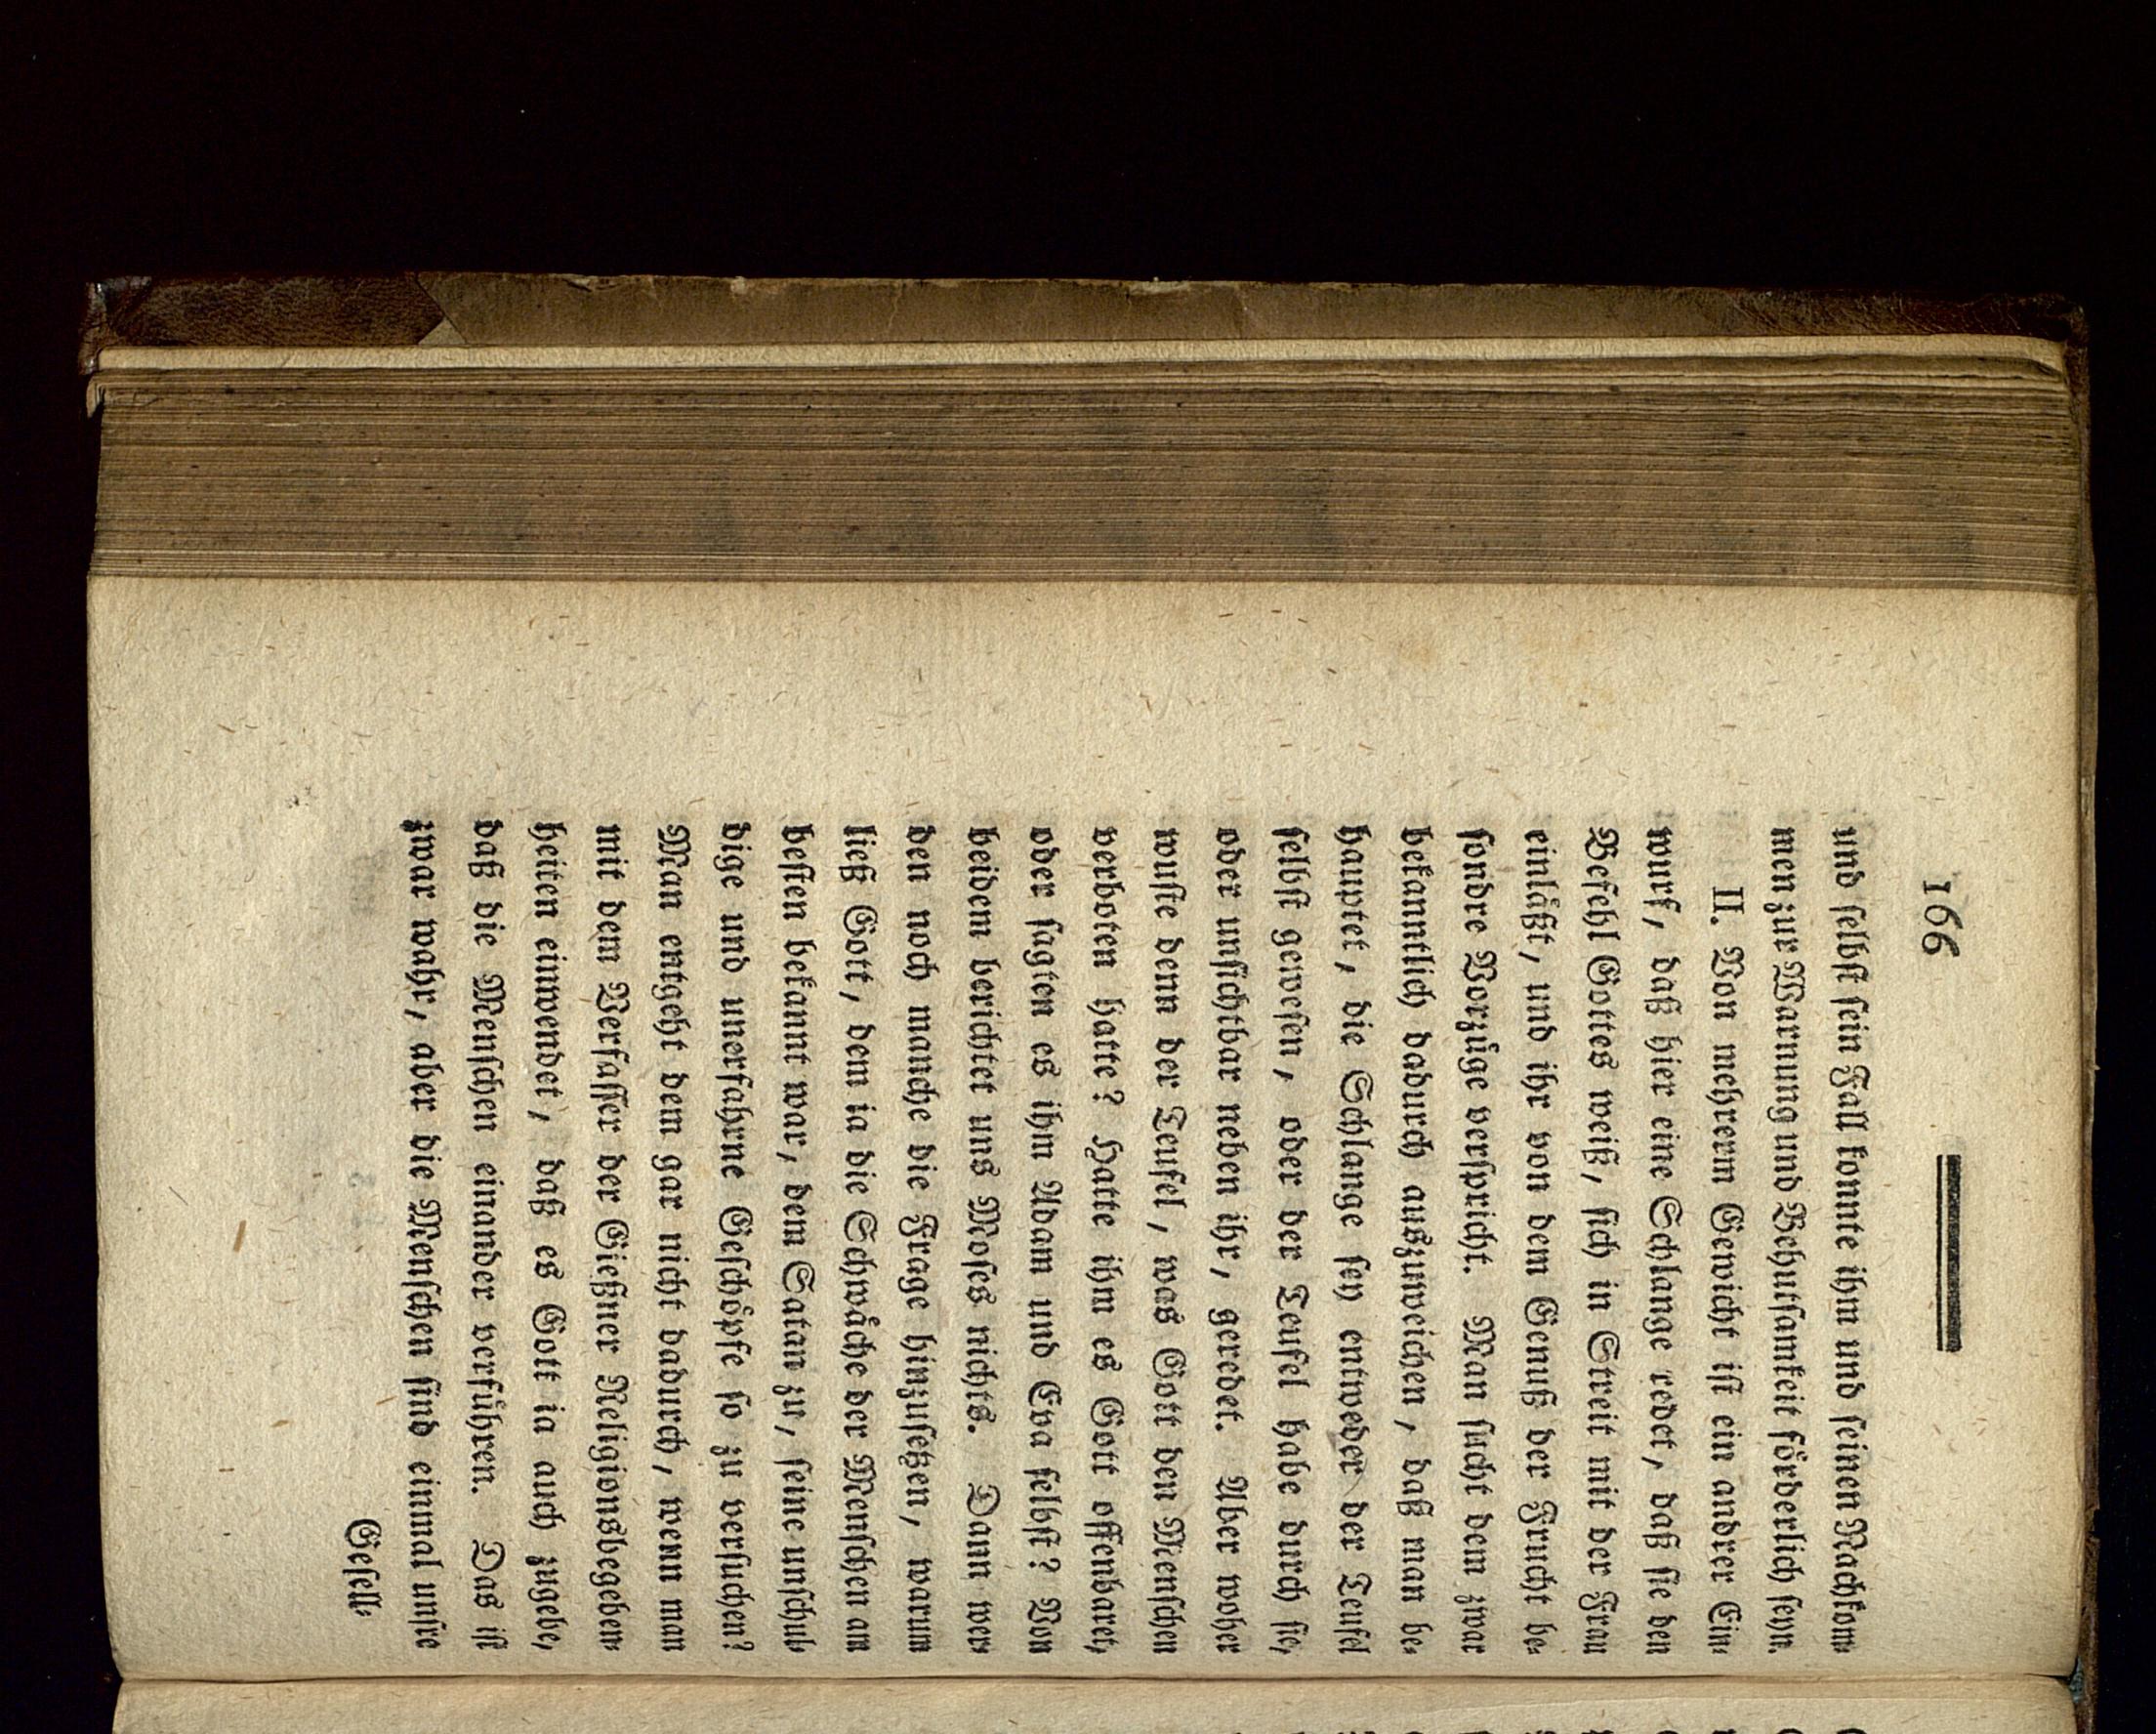 166
und ſelbſt ſein Fall konnte ihm und ſeinen Nachkom-
men zur Warnung und Behutſamkeit förderlich ſeyn.
II. Von mehrerm Gewicht iſt ein andrer Ein-
wurf, daß hier eine Schlange redet, daß ſie den
Befehl Gottes weiß, ſich in Streit mit der Frau
einläßt, und ihr von dem Genuß der Frucht be-
ſondre Vorzüge verſpricht. Man ſucht dem zwar
bekanntlich dadurch auszuweichen, daß man be-
hauptet, die Schlange ſey entweder der Teufel
ſelbſt geweſen, oder der Teufel habe durch ſie,
oder unſichtbar neben ihr, geredet. Aber woher
wuſte denn der Teufel, was Gott den Menſchen
verboten hatte? Hatte ihm es Gott offenbaret,
oder ſagten es ihm Adam und Eva ſelbſt? Von
beidem berichtet uns Moſes nichts. Dann wer-
den noch manche die Frage hinzuſetzen, warum
ließ Gott, dem ia die Schwäche der Menſchen am
beſten bekannt war, dem Satan zu, ſeine unſchul-
dige und unerfahrne Geſchöpfe ſo zu verſuchen?
Man entgeht dem gar nicht dadurch, wenn man
mit dem Verfaſſer der Gießner Religionsbegeben-
heiten einwendet, daß es Gott ia auch zugebe,
daß die Menſchen einander verführen. Das iſt
zwar wahr, aber die Menſchen ſind einmal unſre
Geſell-